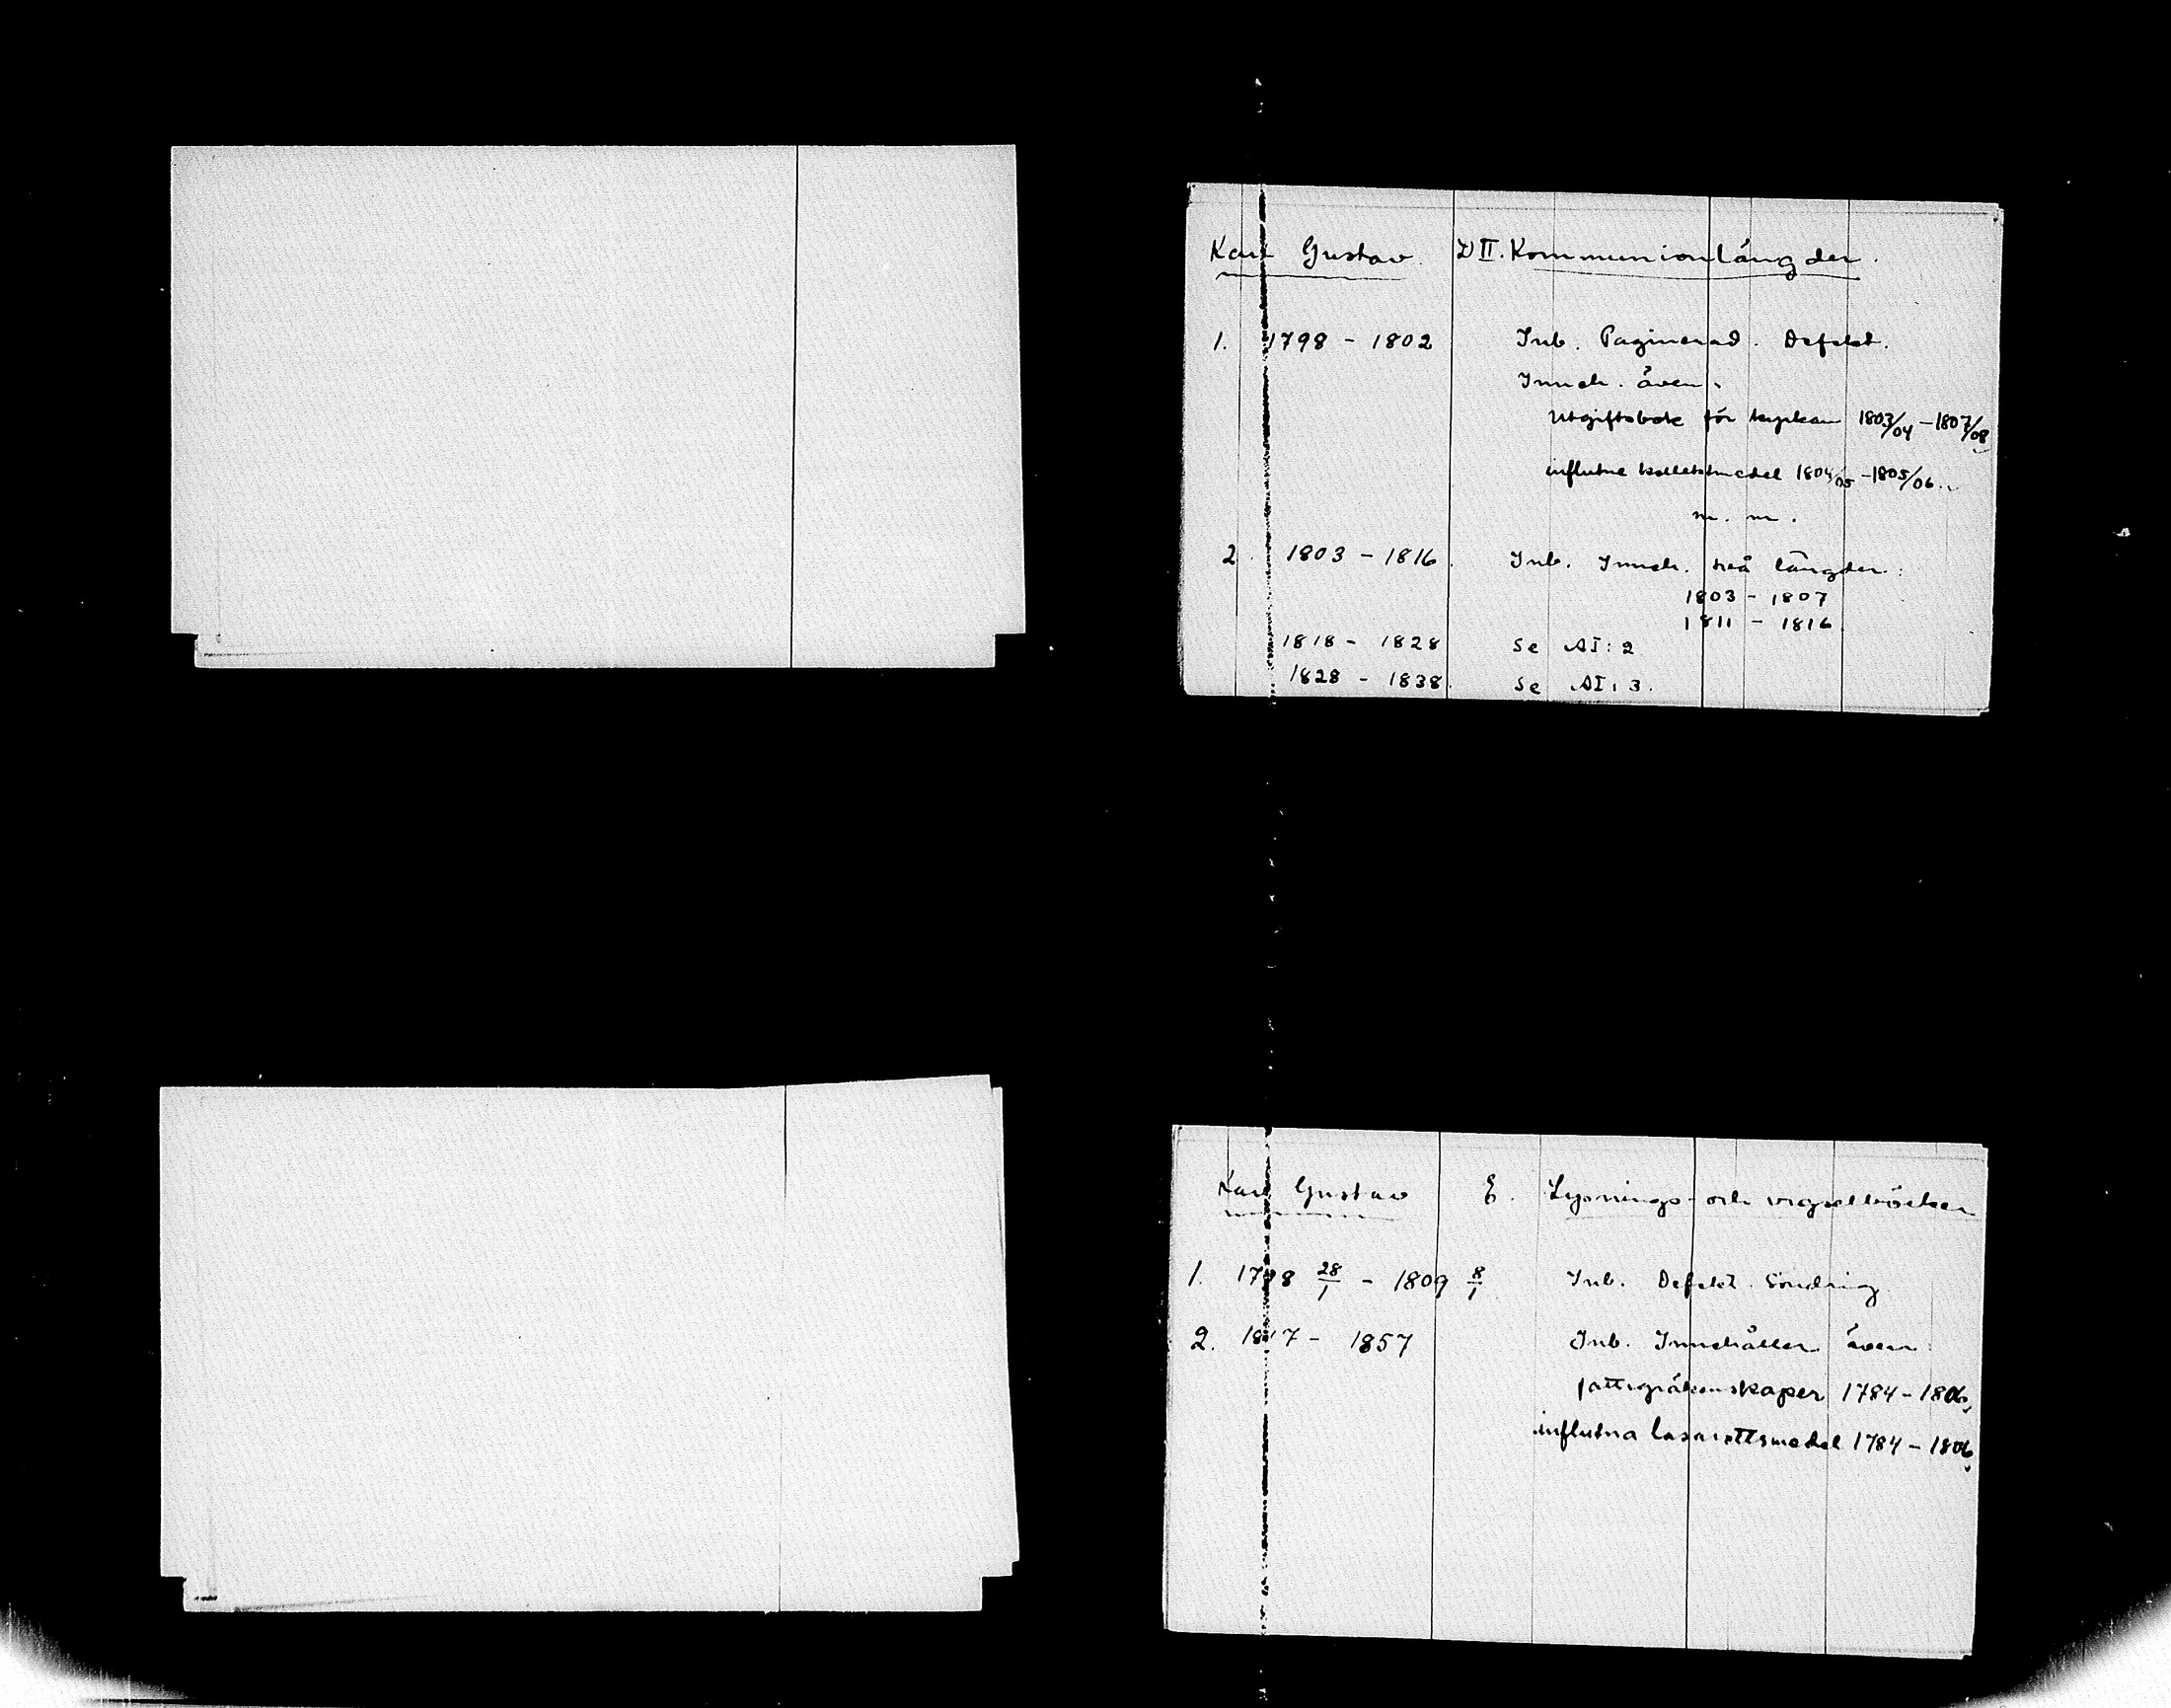 Karl Gustav D II. Kommunionlängder.
1. 1798 - 1802 Inb. Paginerad. Defekt.
Inneh. även:
Utgiftsbok för kyrkan 1803/04 - 1807/08
influtne kollektmedel 1804/05 - 1805/06.
m. m.
2. 1803 - 1816 Inb. Inneh. två längder:
1803 - 1807
1811 - 1816
1818 - 1828 Se AI: 2
1828 - 1838. Se AI: 3.
Karl Gustav E. Lysnings- och vigselböcker
1. 1798 28/1 - 1809 8/1 Inb. Defekt. Söndrig
2. 1817 - 1857 Inb. Innehåller även:
fattigräkenskaper 1784 - 1806,
influtna lasarettsmedel 1784 - 1806